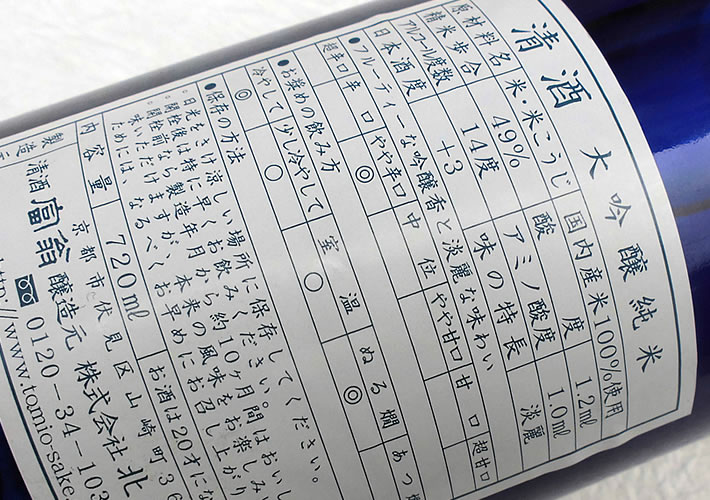 清酒 大吟醸純米
原材料名 米・米こうじ 国内産米100%使用
精米歩合 49% 酸度 1.2ml
アルコール度数 14度 アミノ酸度 1.0ml
日本酒度 +3 味の特長 淡麗
●フルーティーな吟醸香と淡麗な味わい
超辛口 辛口 やや辛口 中位 やや甘口 甘口 超甘口
◎
●お奨めの飲み方
冷やして 少し冷やして 室温 ぬる燗 あつ燗
◎ ○ ○ ◎
●保存の方法
○日光をさけ涼しい場所に保存してください。
○開栓後は特に早くお飲みください。
○開栓前なら製造年月から約10ヶ月間はおいし
味いただけますが、本来の風味をお楽しみ
ためには、なるべくお早めにお召し上がり
内容量 720ml お酒は20才にな
製造元
京都市伏見区山崎町36
清酒 富翁 醸造元 株式会社 北
0120-34-103
http://www.tomio-sake.